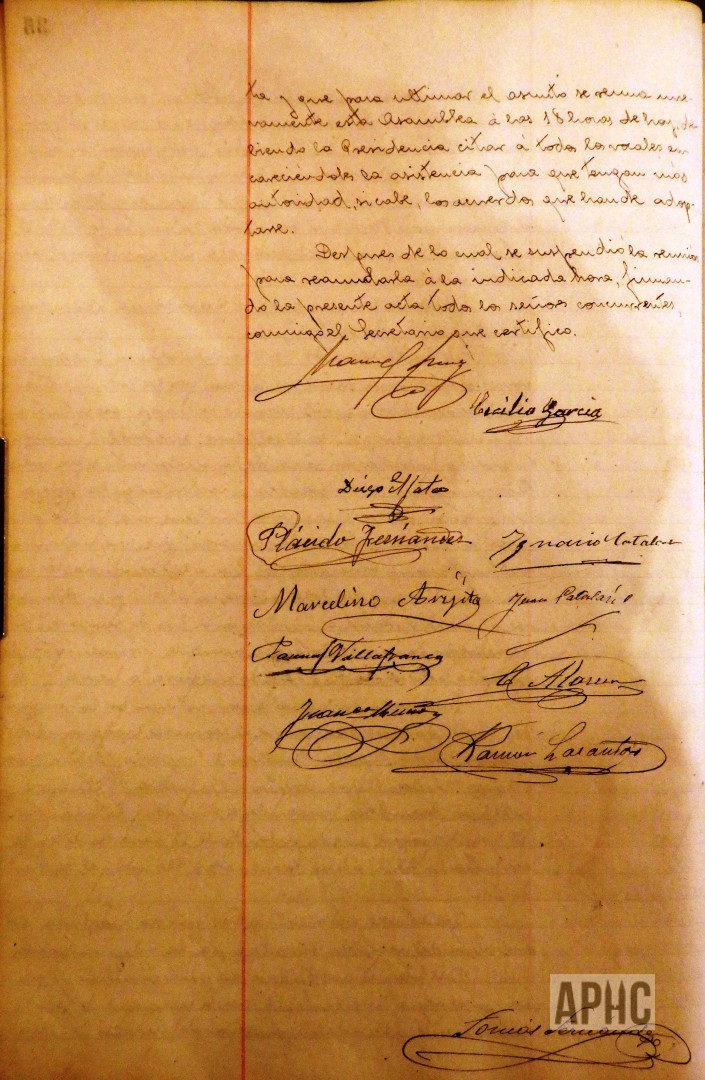 ta y que para ultimar el asunto se reuna nue-
vamente esta Asamblea á las 18 horas de hoy, de-
biendo la Presidencia citar á todos los vocales en
careciéndoles la asistencia para que tengan mas
autoridad, si cabe, los acuerdos que han de adop-
tarse.
Despues de lo cual se suspendió la reunion
para reanudarla á la indicada hora, firman-
do la presente acta todos los señores concurrentes,
conmigo el Secretario que certifico.
Manuel
Cecilio Garcia
Diego Mateo
Plácido Fernández
Ignacio Catalan
Marcelino Argita
Juan Catalán
Pascual Villafranca
Juan Muñoz
Ramón Lacantos
APHC
Tomás